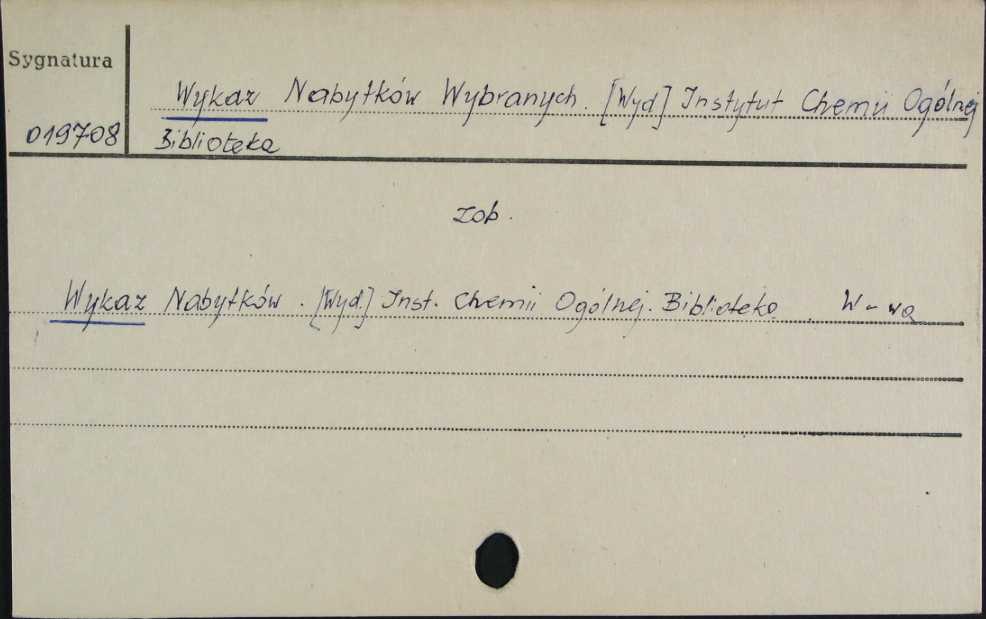 Sygnatura
Wykaz Nabytków Wybranych. [Wyd] Instytut Chemii Ogólnej
019708 Biblioteka
zob.
Wykaz Nabytków. [Wyd.] Inst. Chemii Ogólnej. Biblioteka W-wa